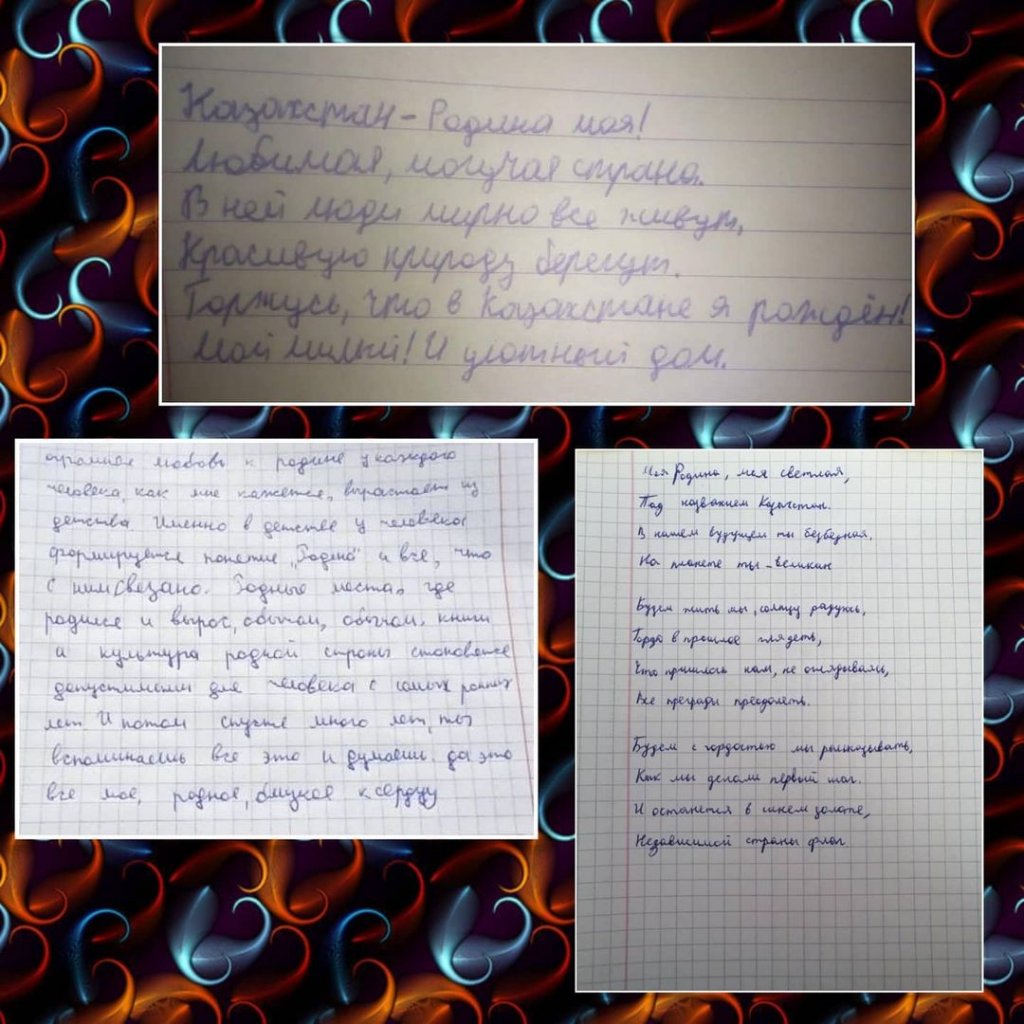 Казахстан - Родина моя!
Любимая, могучая страна.
В ней люди мирно все живут,
Красивую природу берегут.
Горжусь, что в Казахстане я рождён!
Мой милый! И уютный дом.
огромная любовь к родине у каждого
человека, как мне кажется, вырастает из
детства Именно в детстве у человека
формируется понятие „Родина" и все, что
с ним связано. Родные места, где
родился и вырос, обычаи, обычаи, книги
и культура родной страны становятся
допустимыми для человека с самых ранних
лет. И потом спустя много лет, ты
вспоминаешь все это и думаешь. да это
все мое, родное, близкое к сердцу
Моя Родина, моя светлая,
Под названием Казахстан.
В нашем будущем ты безбедная,
На планете ты - великан
Будем жить мы, солнцу радуясь,
Гордо в прошлое глядеть,
Что пришлось нам, не оглядываясь,
Все преграды преодолеть.
Будем с гордостью мы рассказывать,
Как мы делали первый шаг.
И останется в синем золоте,
Независимой страны флаг